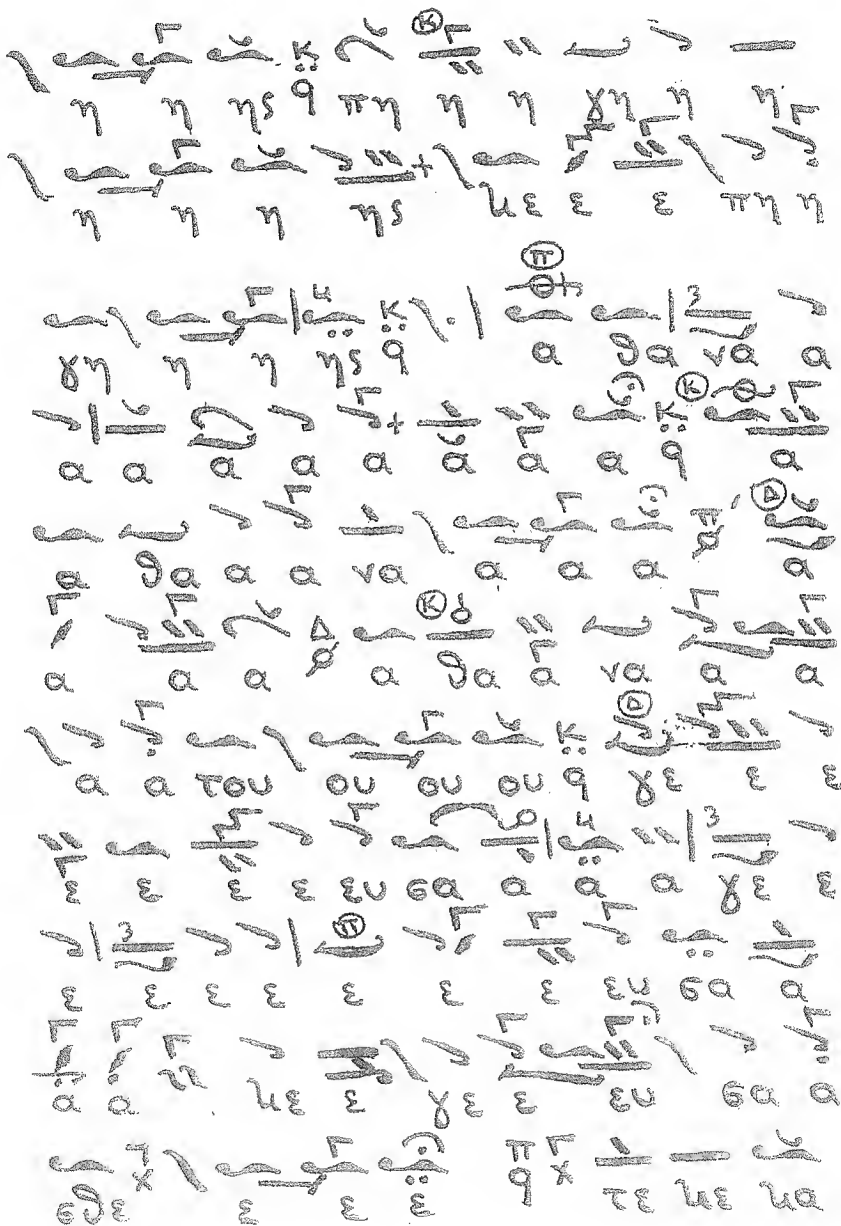 η η ης πη η η γη η η
η η η ης κε ε ε πη η
γη η η ης α θα να α
α α α α α α α α α
α θα α α να α α α α
α α α α θα α να α α
α α του ου ου ου γε ε ε
ε ε ε ε ευ σα α α α γε ε
ε ε ε ε ε ε ε ευ σα α
α α κε ε γε ε ευ σα α
σθε ε ε ε τε κε κα